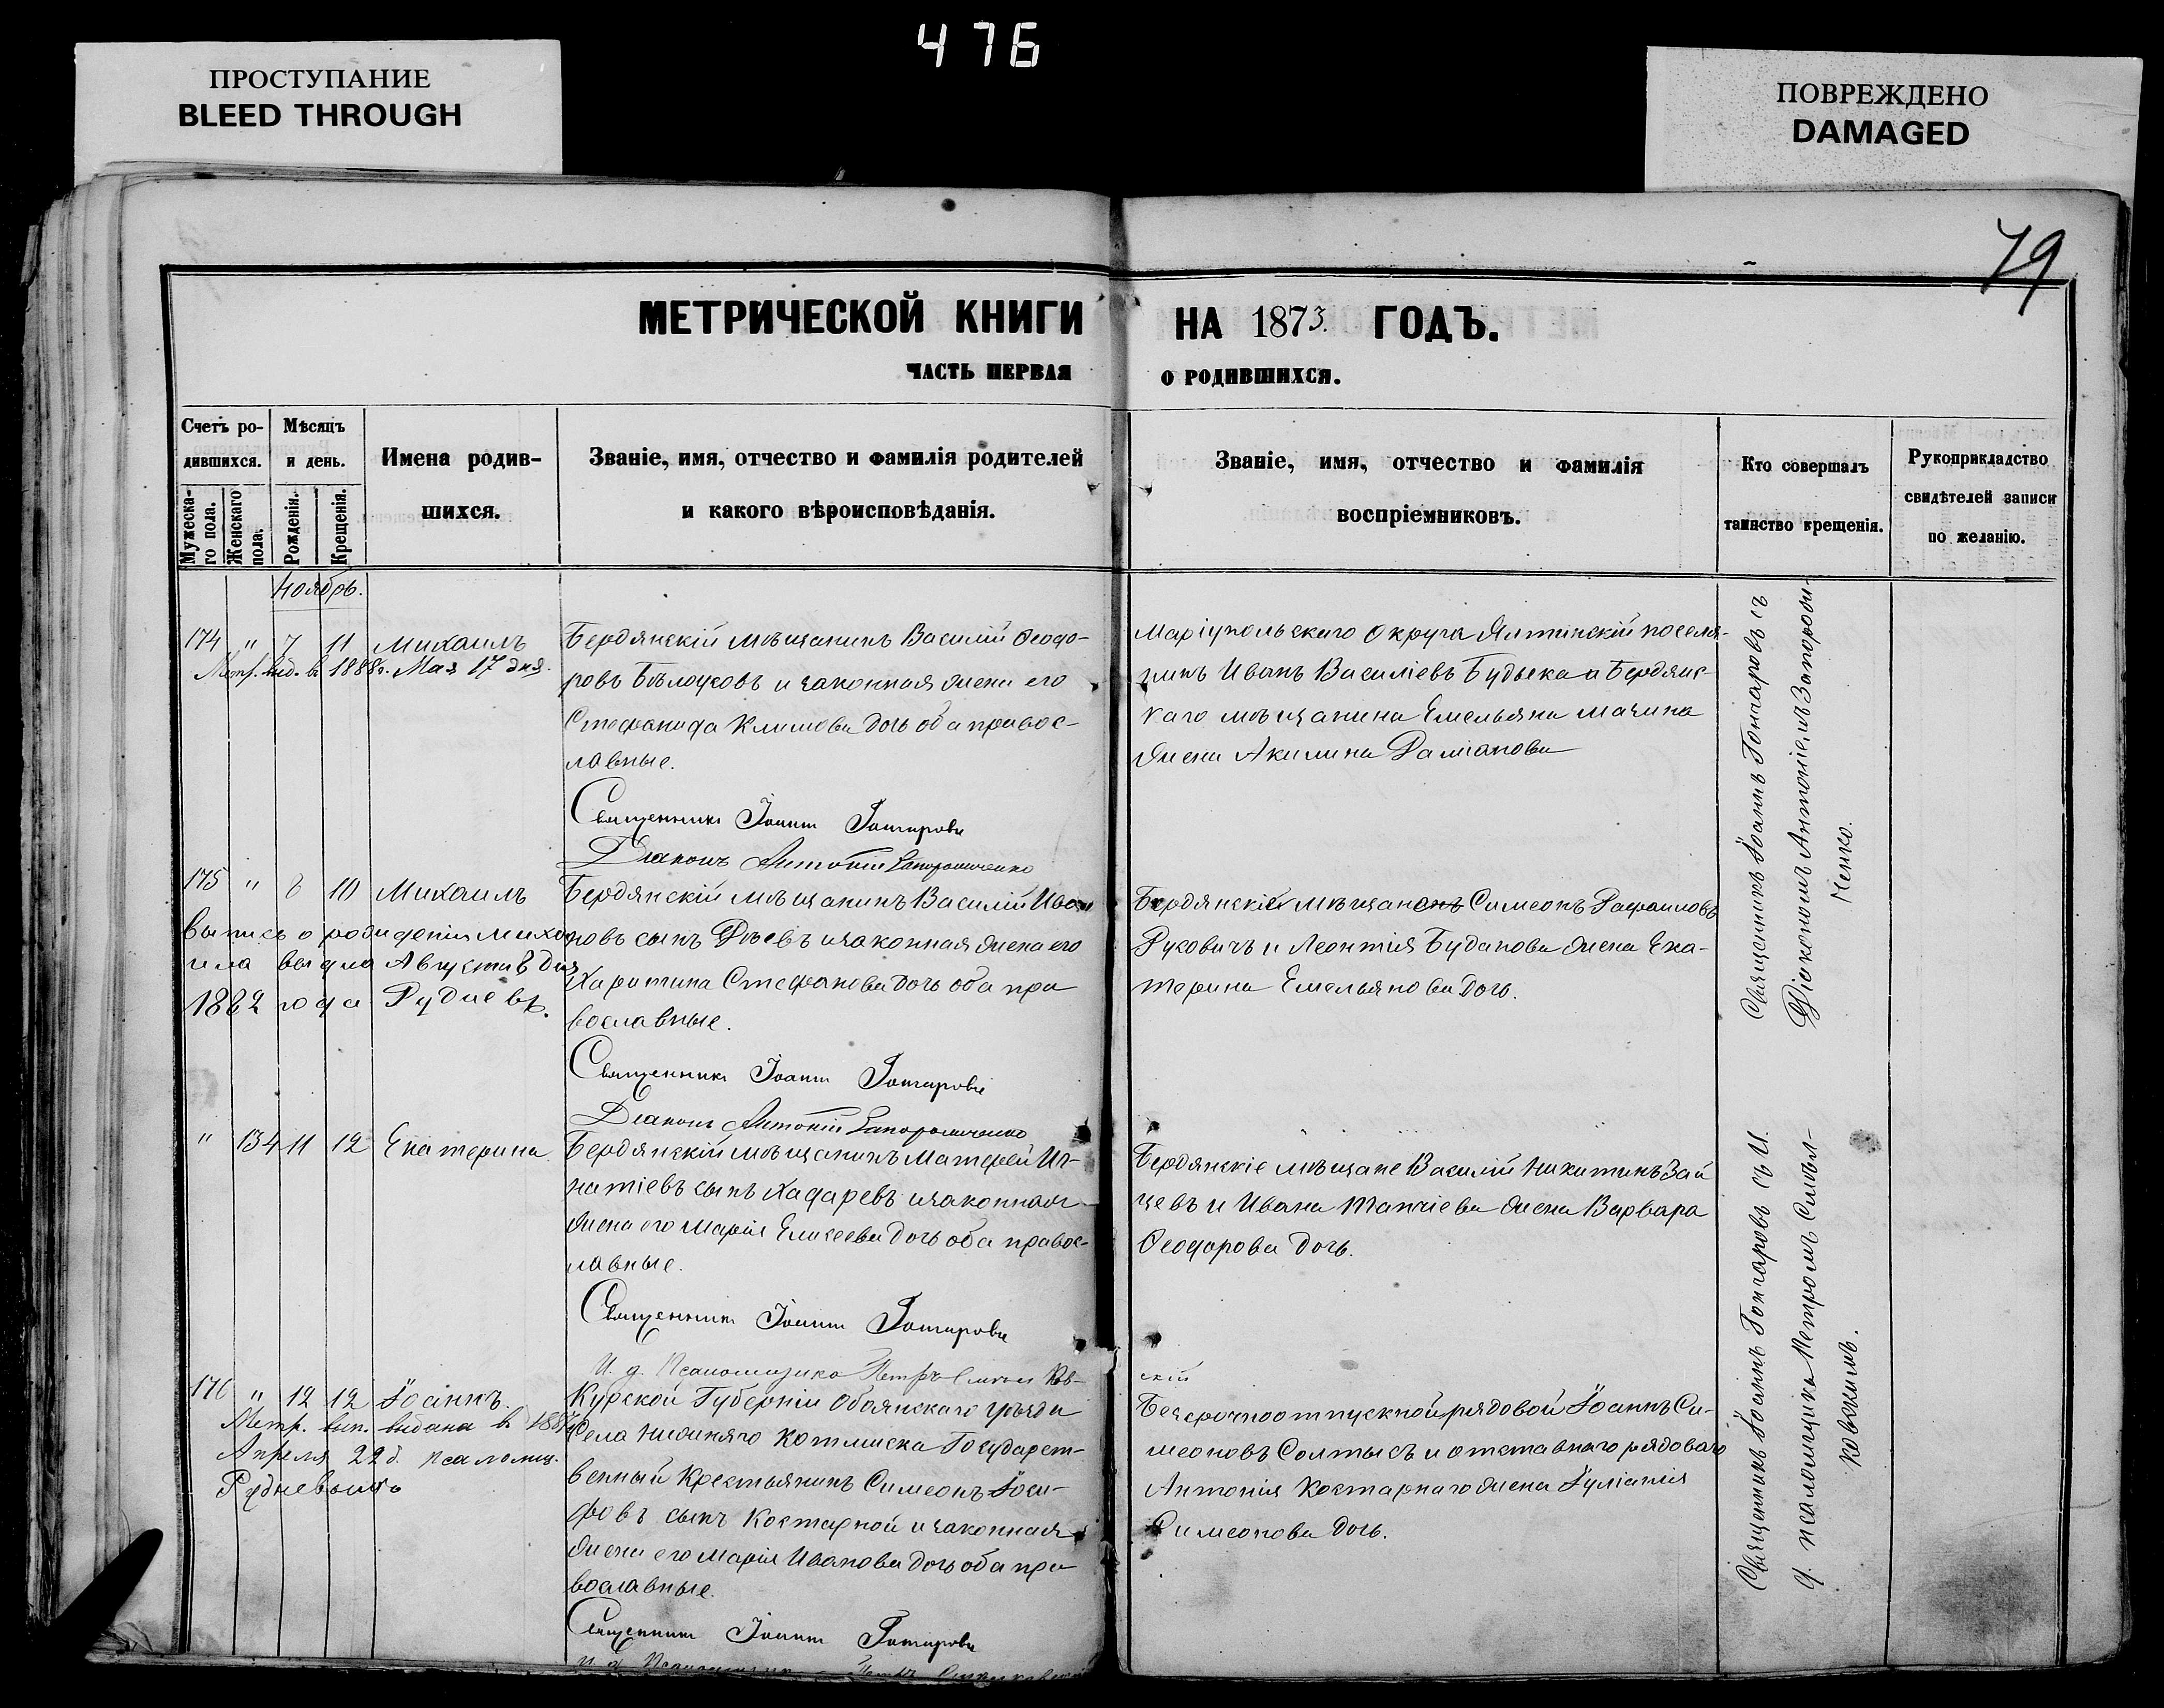 476
ПРОСТУПАНИЕ
BLEED THROUGH
ПОВРЕЖДЕНО
DAMAGED
79
МЕТРИЧЕСКОЙ КНИГИ НА 1873. ГОДЪ.
ЧАСТЬ ПЕРВАЯ О РОДИВШИХСЯ.
Счетъ ро-
дившихся.
Мужеска-
го пола.
Женскаго
пола.
Мѣсяцъ
и день.
Рожденія.
Крещенія.
Имена родив-
шихся.
Званіе, имя, отчество и фамилія родителей
и какого вѣроисповѣданія.
Званіе, имя, отчество и фамилія
воспріемниковъ.
Кто совершалъ
таинство крещенія.
Рукоприкладство
свидѣтелей записи
по желанію.
Ноябрь.
174 " 7 11 Михаилъ
Метр. выд. в 1888г. Мая 17 дня.
Бердянскій мѣщанинъ Василій Ѳеодо-
ровъ Бѣлоусовъ и законная жена его
Стефанида Климова дочь оба правос-
лавные.
Священникъ Іоаннъ Гончаровъ
Діаконъ Антоній Запорожченко
Маріупольскаго Округа Ялтинскій поселя-
нинъ Иванъ Василіевъ Будыка и Бердянс-
каго мѣщанина Емельяна
жена Акилина
Священникъ Іоаннъ Гончаровъ съ
Діакономъ Антоніемъ Запорож-
ченко.
175 " 8 10 Михаилъ
выпись о рожденіи Миха-
ила выдна Августа 8 дня
1882 года Рудневъ.
Бердянскій мѣщанинъ Василій Ива-
новъ сынъ и законная жена его
Харитина Стефанова дочь оба пра
вославные.
Священникъ Іоаннъ Гончаровъ
Діаконъ Антоній Запорожченко
Бердянскій мѣщанинъ Симеонъ Рафаиловъ
Руковичъ и Леонтія Буданова жена Ека-
терина Емельянова дочь.
" 134 11 12 Екатерина
Бердянскій мѣщанинъ Матфей Иг-
натіевъ сынъ и законная
жена его Марія Елисеева дочь оба правос-
лавные.
Священникъ Іоаннъ Гончаровъ
И. д. Псаломщика Петръ Смѣл ков-
скій
Бердянскіе мѣщане Василій Никитинъ Зай
цевъ и Ивана жена Варвара
Ѳеодорова дочь.
Священникъ Іоаннъ Гончаровъ съ И.
д. псаломщика Петромъ Смѣл-
ковскимъ.
176 " 12 12 Іоаннъ.
Метр. вып. выдана в
Апреля 22 д. псаломщ.
Рудневымъ
Курской Губерніи Обоянскаго уѣзда
села Нижняго Государст-
венный Крестьянинъ Симеонъ Іоси-
фовъ сынъ Костарной и законная
жена его Марія Иванова дочь оба пра
вославные.
Священникъ Іоаннъ Гончаровъ
И. д. Псаломщика Петръ Смѣлковскій
Безсрочноотпускной рядовой Іоаннъ Си-
меоновъ Солтысъ и отставнаго рядоваго
Антонія Костарнаго жена Іуліанія
Симеонова дочь.